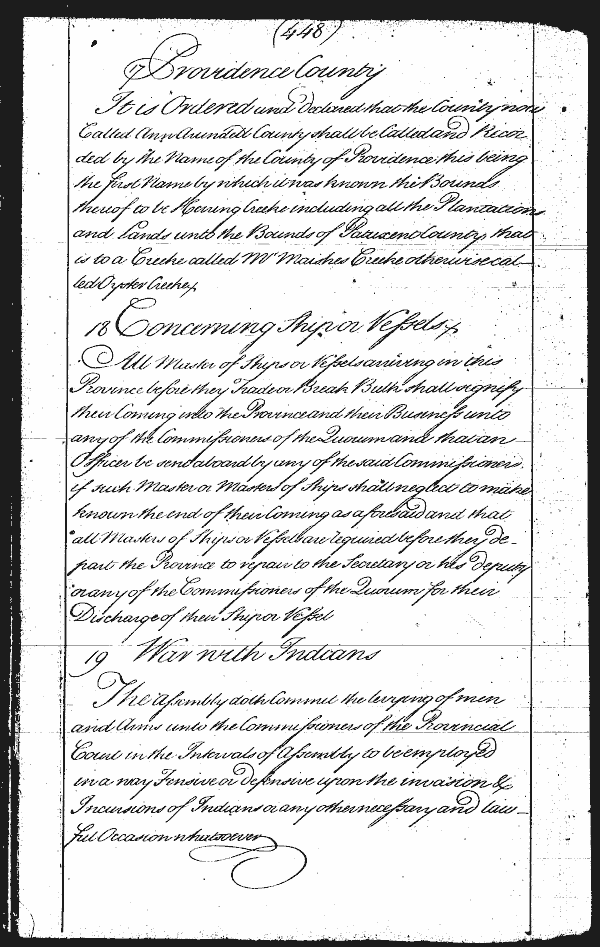 (448)
17 Providence County
It is Ordered and Declared that the County now
Called Ann Arundell County shall be Called and Recor
ded by the Name of the County of Providence this being
the first Name by which it was known the Bounds
thereof to be Herring Creeke including all the Plantations
and Lands unto the Bounds of Patuxent County, that
is to a Creeke called Mr Marshes Creeke otherwise cal
led Oyster Creeke
18 Concerning Ship or Vessels
All Master of Ships or Vessels arriving in this
Province before they Trade or Break Bulk shall signify
their Coming into the Province and their Business unto
any of the Commissioners of the Quorum and that an
Officer be send aboard by any of the said Commissioners
if such Master or Masters of Ships shall neglect to make
known the end of their Coming as aforesaid and that
all Masters of Ships or Vessels are required before they de-
part the Province to repair to the Secretary or his deputy
or any of the Commissioners of the Quorum for their
Discharge of their Ship or Vessel
19 War with Indians
The Assembly doth Commit the levying of men
and Arms unto the Commissioners of the Provincial
Court in the Intervals of Assembly to be employed
in a way Fensive or Defensive upon the invasion &
Incursions of Indians or any other necessary and law-
full Occasion whatsoever